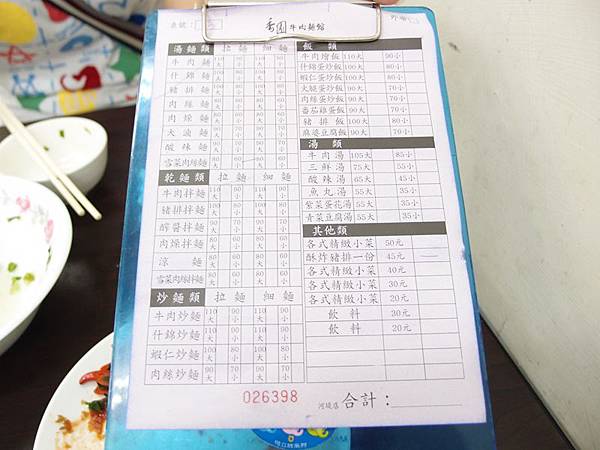 桌號：
外帶
香園牛肉麵館
湯麵類 拉麵 細麵
牛肉麵 110大 90小 110大 90小
什錦麵 100大 80小 100大 80小
豬排麵 100大 80小 100大 80小
肉絲麵
肉燥麵
大滷麵
酸辣麵
雪菜肉絲麵
乾麵類 拉麵 細麵
牛肉拌麵
豬排拌麵
醡醬拌麵
肉燥拌麵
涼麵
雪菜肉絲拌麵
炒麵類 拉麵 細麵
牛肉炒麵 110大 90小 110大 90小
什錦炒麵 110大 90小 110大 90小
蝦仁炒麵 100大 80小 100大 80小
肉絲炒麵 90大 70小 90大 70小
飯類
牛肉燴飯 110大 90小
什錦蛋炒飯 100大 80小
蝦仁蛋炒飯 100大 80小
火腿蛋炒飯 90大 70小
肉絲蛋炒飯 90大 70小
番茄雞蛋飯 90大 70小
豬排飯 100大 80小
麻婆豆腐飯 90大 70小
湯類
牛肉湯 105大 85小
三鮮湯 75大 55小
酸辣湯 65大 45小
魚丸湯 55大 35小
紫菜蛋花湯 55大 35小
青菜豆腐湯 55大 35小
其他類
各式精緻小菜 50元
酥炸豬排一份 45元
各式精緻小菜 40元
各式精緻小菜 30元
各式精緻小菜 20元
飲料 30元
飲料 20元
026398
河堤店 合計：